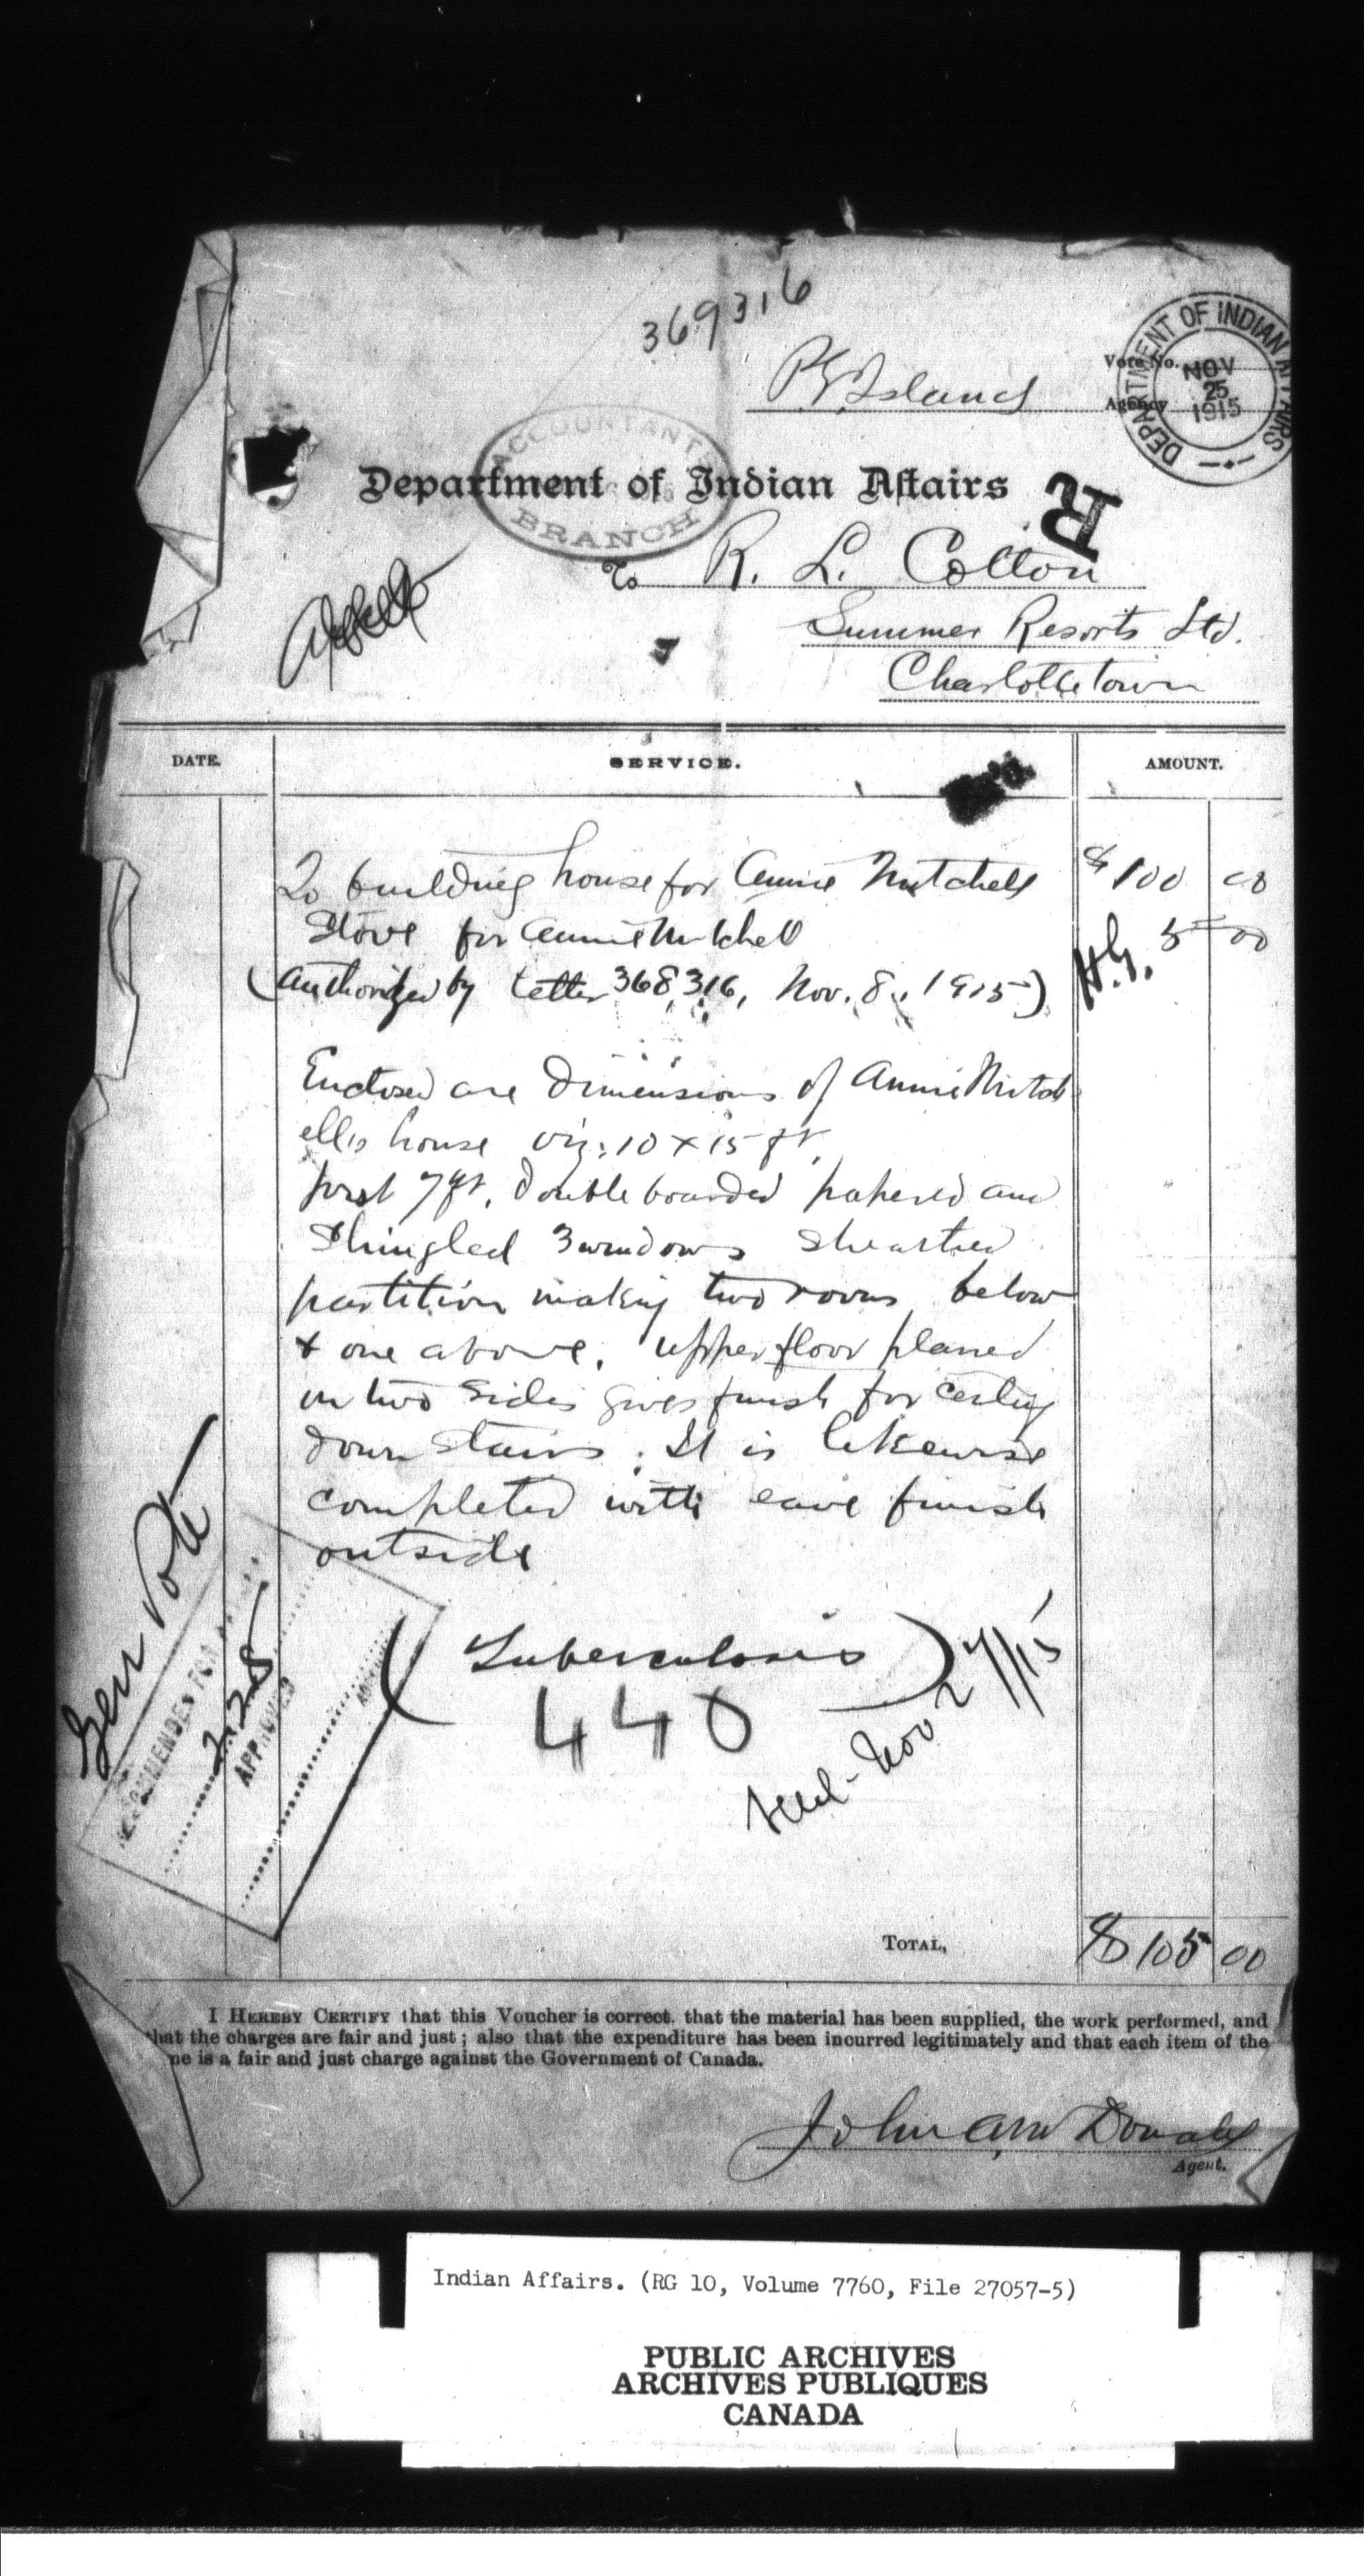 369316
P.E. Island
Vote No.
Agency
DEPARTMENT OF INDIAN AFFAIRS
NOV
25
1915
ACCOUNTANTS
BRANCH
Department of Indian Affairs
R
To R. L. Cotton
Summer Resorts Ltd.
Charlottetown
DATE. SERVICE. AMOUNT.
To building house for Annie Mitchell $100 00
Stove for Annie Mitchell 5 00
H.G.
(Authorized by letter 368,316, Nov. 8, 1915)
Enclosed are Dimensions of Annie Mitch
ells house viz: 10 x 15 ft.
post 7 ft. Double boarded papered and
Shingled 3 windows sheathed
partition making two rooms below
& one above. Upper floor planed
on two sides gives finish for ceiling
down stairs. It is likewise
completed with eave finish
outside
(Tuberculosis)
440
Nov 27/15
Gen Vote
RECOMMENDED FOR
APPROVED
TOTAL, $105 00
I HEREBY CERTIFY that this Voucher is correct, that the material has been supplied, the work performed, and
that the charges are fair and just; also that the expenditure has been incurred legitimately and that each item of the
me is a fair and just charge against the Government of Canada.
John A McDonald
Agent.
Indian Affairs. (RG 10, Volume 7760, File 27057-5)
PUBLIC ARCHIVES
ARCHIVES PUBLIQUES
CANADA